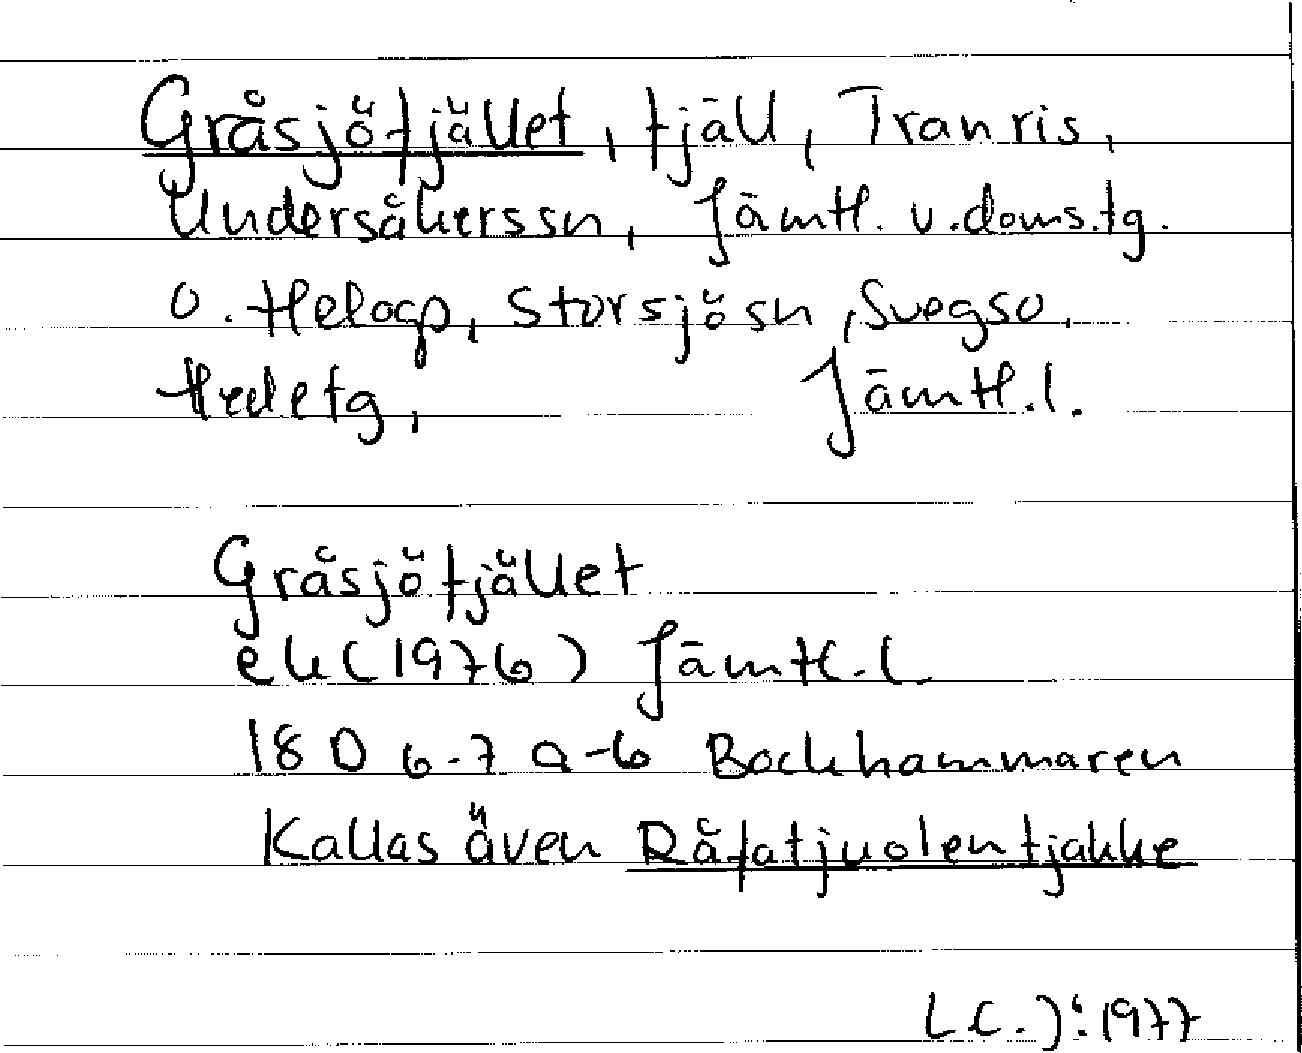 Gråsjöfjället, fjäll, Tranris,
Undersåkerssn, Jämtl. v. doms. tg.
o. Helagp, Storsjösn, Svegso,
Hedetg, Jämtl.l.
Gråsjöfjället
ek (1976) Jämtl.l.
18 D 6-7 a-b Bockhammaren
Kallas även Råfatjuolentjakke
L.C.J:1977